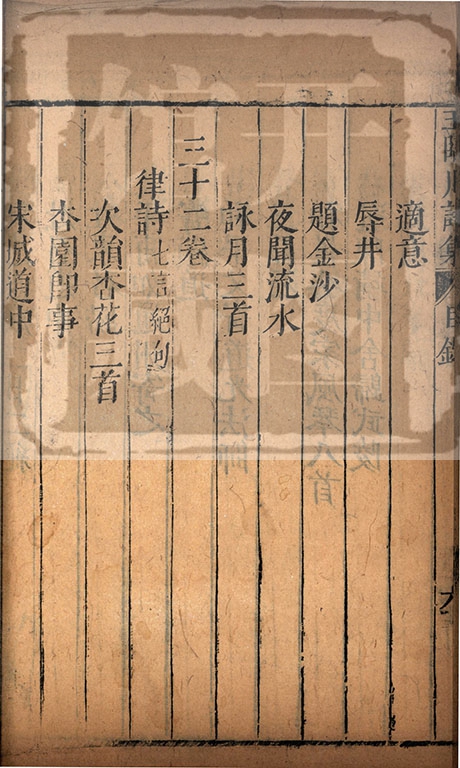 王臨川詩集 目錄
適意
辱井
題金沙
夜聞流水
詠月三首
三十二卷
律詩 七言絕句
次韻杏花三首
杏園即事
宋城道中